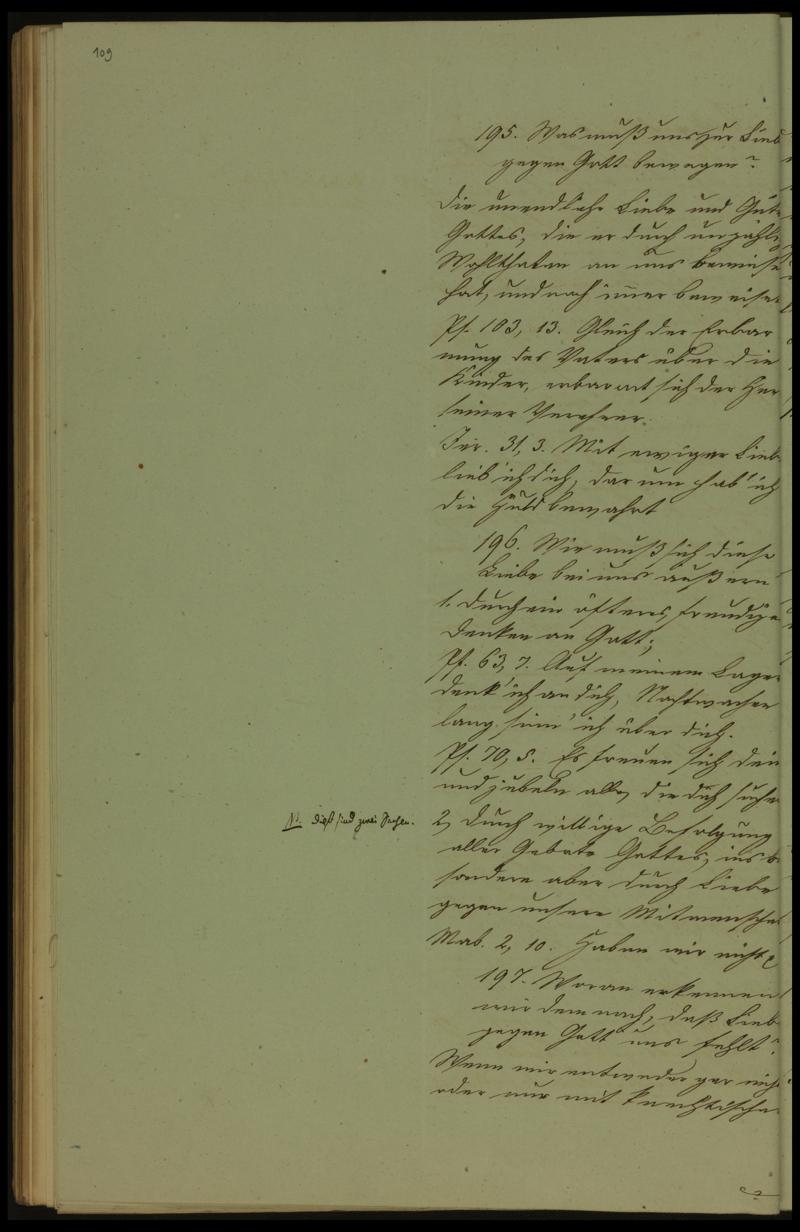 109
195. Was muß uns zur Lieb
gegen Gott bewegen?
Die unendliche Liebe und Güte
Gottes, die er durch unzähli
Wohlthaten an uns bewiese
hat, und noch im̅er beweiset
Ps. 103, 13. Gleich der Erbar
mung des Vaters über die
Kinder, erbarmt sich der Her
seiner Verehrer.
Jer. 31, 3. Mit ewiger Lieb
lieb' ich dich, darum hab' ich
die Huld bewahrt
196. Wie muß sich diese
Liebe bei uns äußern
1. durch ein öfteres, freudige
Denken an Gott;
Ps. 63, 7. Auf meinem Lager
denk' ich an dich, Nachtwachen
lang sinn' ich über dich.
Ps. 70, 5. Es freuen sich dein
und jubeln alle, die dich suche
NB. dieß sind zwei Sachen.
2, durch willige Befolgung
aller Gebote Gottes, ins b
sondere aber durch Liebe
gegen unsere Mitmensche
Mal. 2, 10. Haben wir nicht
197. Woran erkennen
wir demnach, daß Lieb
gegen Gott uns fehlt?
Wenn wir entweder gar nich
oder nur mit knechtische